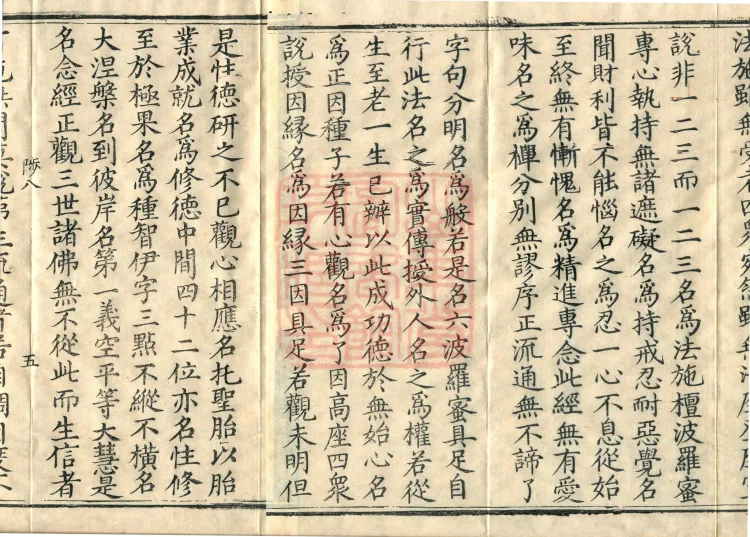 說非一二三而一二三名爲法施檀波羅蜜
專心執持無諸遮礙名爲持戒忍耐惡覺名
聞財利皆不能惱名之爲忍一心不息從始
至終無有慚愧名爲精進專念此經無有愛
味名之爲禪分別無謬序正流通無不諦了
字句分明名爲般若是名六波羅蜜具足自
行此法名之爲實傳授外人名之爲權若從
生至老一生已辨以此成功德於無始心名
爲正因種子若有心觀名爲了因高座四衆
說授因縁名爲因縁三因具足若觀未明但
是性德研之不已觀心相應名托聖胎以胎
業成就名爲修德中間四十二位亦名性修
至於極果名爲種智伊字三點不縱不橫名
大涅槃名到彼岸名第一義空平等大慧是
名念經正觀三世諸佛無不從此而生信者
陟八
五